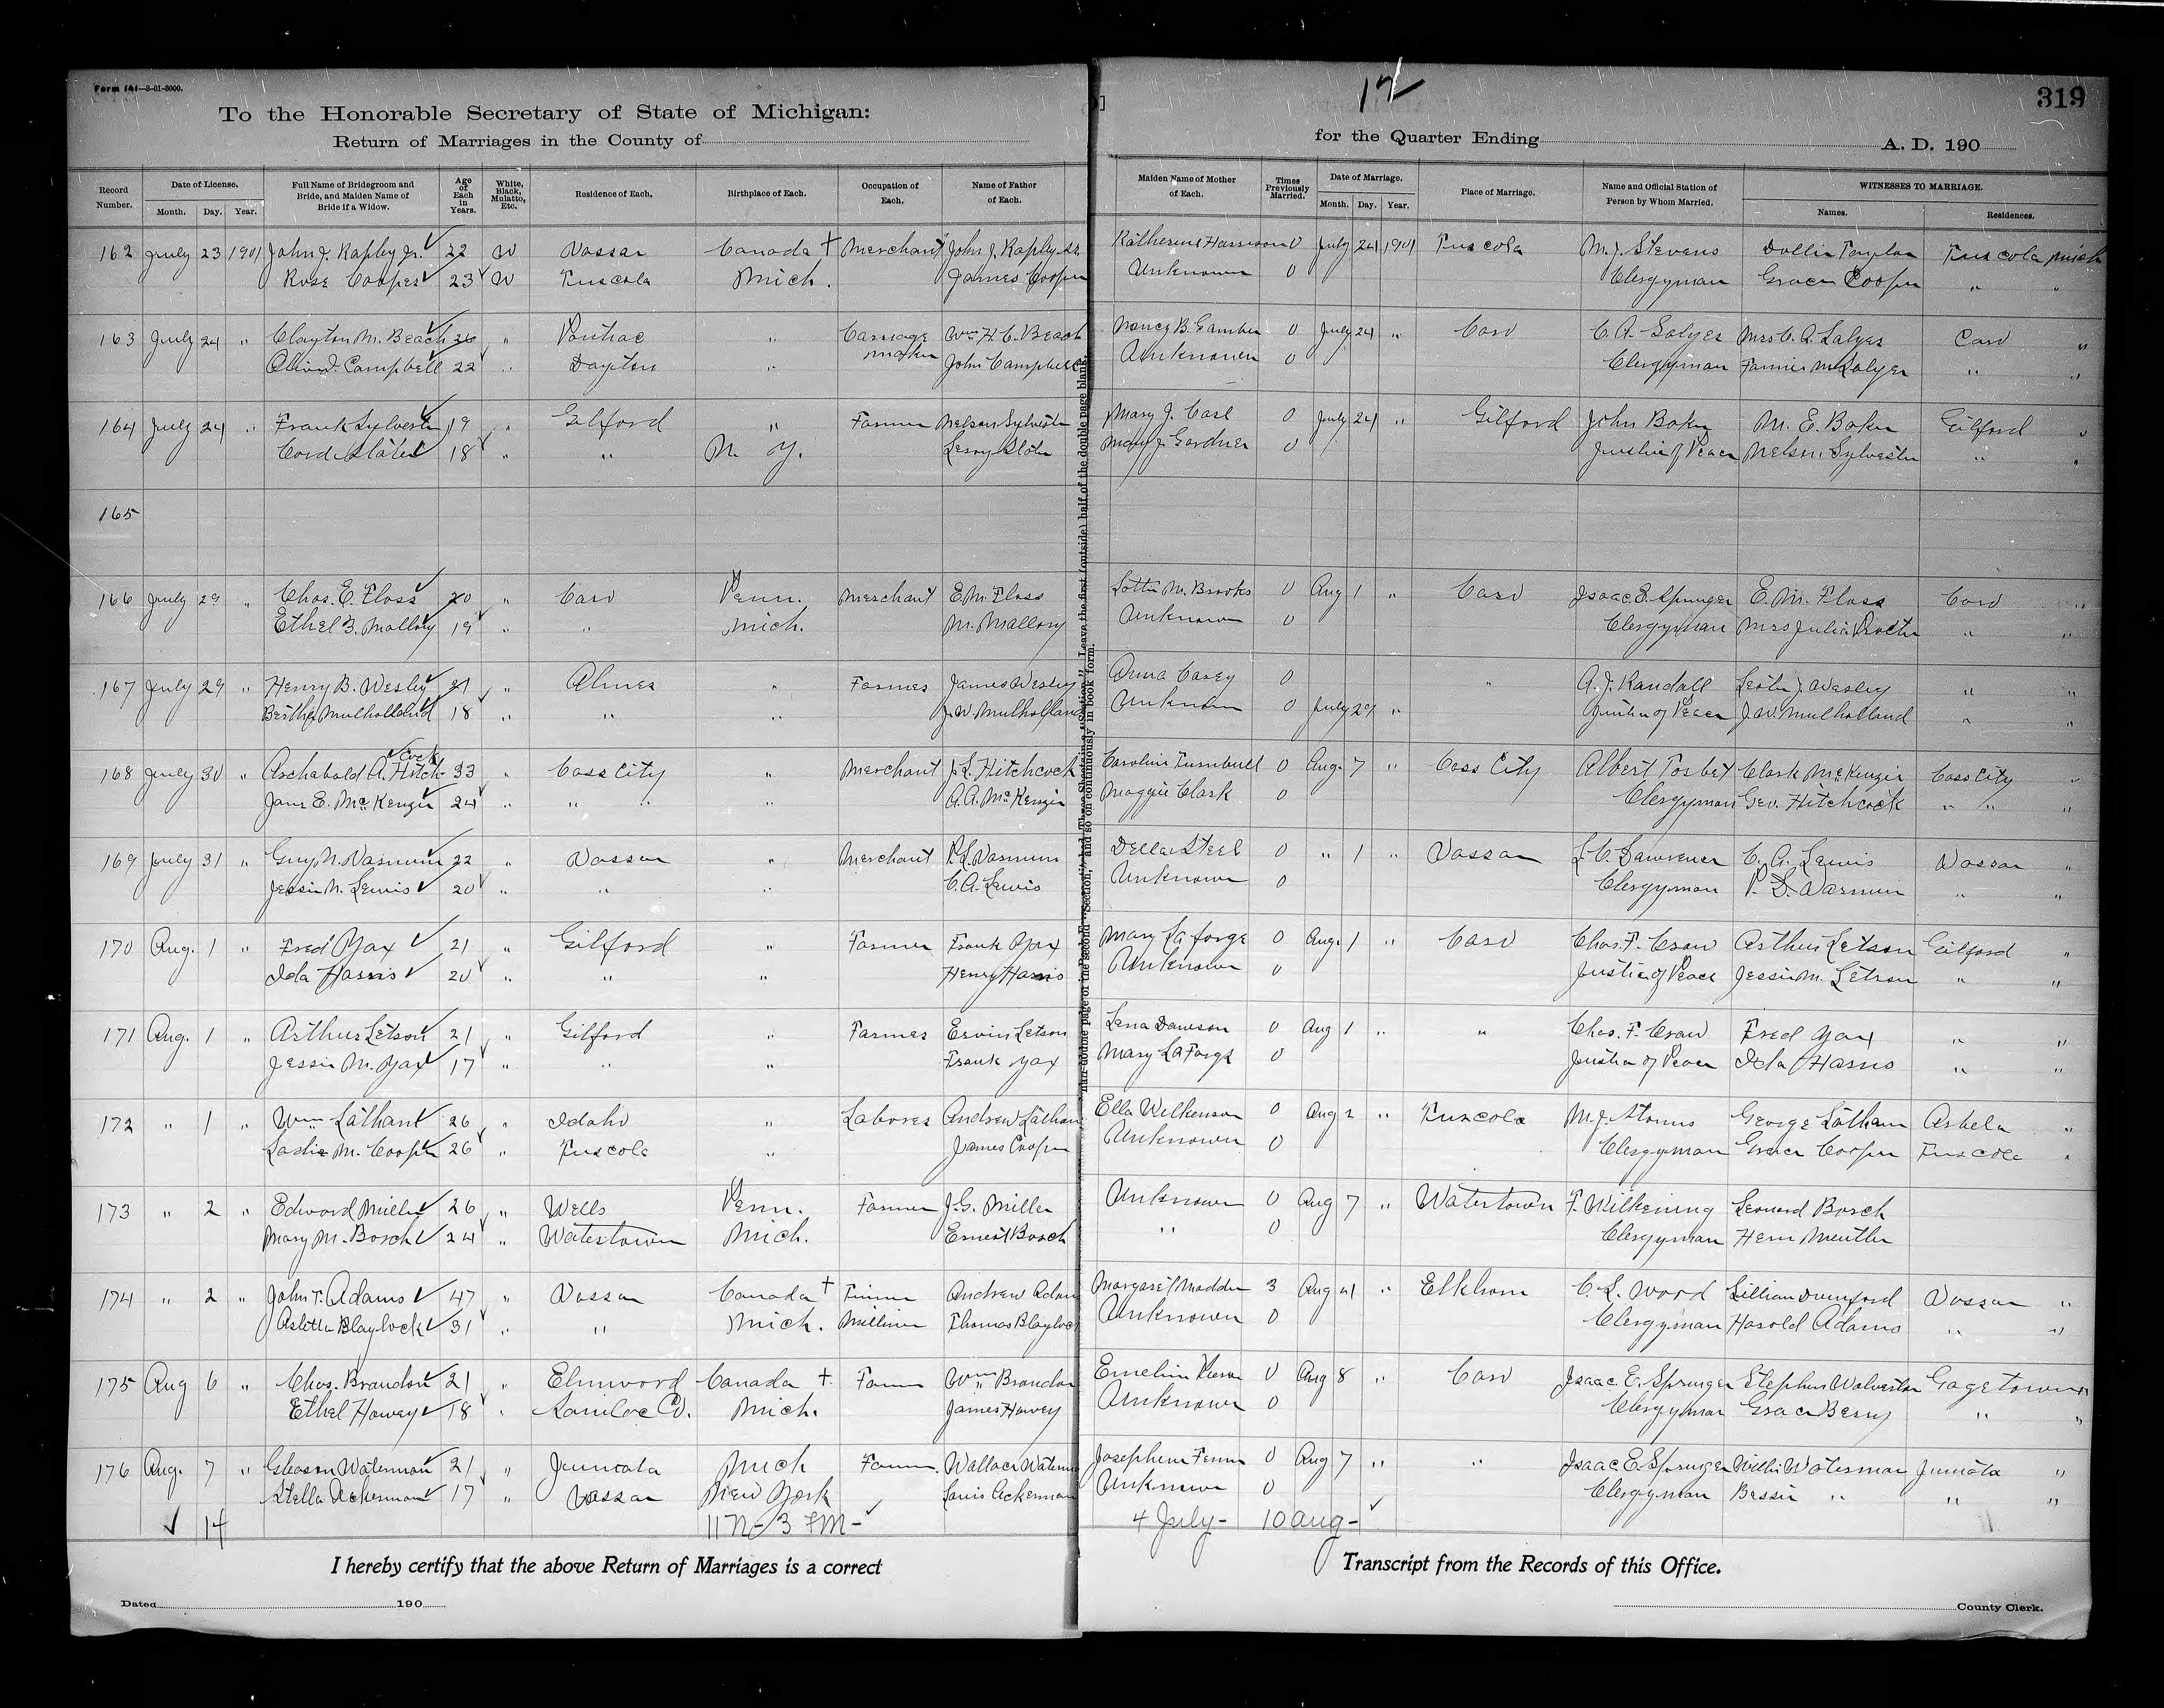 Form 141—3-01-3000.
12
319
To the Honorable Secretary of State of Michigan:
Return of Marriages in the County of
for the Quarter Ending A. D. 190
Record Number. Date of License. Month. Day. Year. Full Name of Bridegroom and Bride, and Maiden Name of Bride if a Widow. Age of Each in Years. White, Black, Mulatto, Etc. Residence of Each. Birthplace of Each. Occupation of Each. Name of Father of Each. Maiden Name of Mother of Each. Times Previously Married. Date of Marriage. Month. Day. Year. Place of Marriage. Name and Official Station of Person by Whom Married. WITNESSES TO MARRIAGE. Names. Residences.
162 July 23 1901 John J. Rapley Jr. 22 W Vassar Canada + Merchant John J. Rapley Sr. Katherine Harrison 0 July 24 1901 Tuscola M. J. Stevens Dollie Taylor Tuscola Mich
Rose Cooper 23 W Tuscola Mich. James Cooper Unknown 0 Clergyman Grace Cooper " "
163 July 24 " Clayton M. Beach 26 " Pontiac " Carriage maker Wm H. C. Beach Nancy B. 0 July 24 " Caro C. A. Salyer Mrs C. A. Salyer Caro "
Campbell 22 " Dayton " John Campbell Unknown 0 Clergyman Fannie M Salyer " "
164 July 24 " Frank Sylvester 19 " Gilford " Farmer Nelson Sylvester Mary J. Carl 0 July 24 " Gilford John Baker M. E. Baker Gilford "
Cord Slater 18 " " N. Y. Leroy Slater Mary J. Gardner 0 Justice of Peace Nelson Sylvester " "
165
166 July 29 " Chas. E. Floss 20 " Caro Penn. Merchant E. M. Floss Lottie M. Brooks 0 Aug 1 " Caro Isaac E. Springer E. M. Floss Caro "
Ethel B. Mallory 19 " " Mich. M. Mallory Unknown 0 Clergyman Mrs Julia Proctor " "
167 July 29 " Henry B. Wesley 21 " Almer " Farmer James Wesley Anna Casey 0 " A. J. Randall Lester J. Wesley " "
Bertha Mulholland 18 " " " J. W. Mulholland Unknown 0 July 29 " Justice of Peace J. W. Mulholland " "
168 July 30 " Archabald A. Hitchcock 33 " Cass City " Merchant J. L. Hitchcock Caroline Turnbull 0 Aug. 7 " Cass City Albert Torbet Clark McKenzie Cass City "
Jane E. McKenzie 24 " " " " A. A. McKenzie Maggie Clark 0 Clergyman Geo. Hitchcock " " "
169 July 31 " Guy N. Varnum 22 " Vassar " Merchant P. L. Varnum Della Steel 0 " 1 " Vassar L. C. Lawrence C. A. Lewis Vassar "
Jessie N. Lewis 20 " " " C. A. Lewis Unknown 0 Clergyman P. L. Varnum " "
170 Aug. 1 " Fred Yax 21 " Gilford " Farmer Frank Yax Mary La forge 0 Aug. 1 " Caro Chas. F. Craw Arthur Letson Gilford "
Ida Harris 20 " " " Henry Harris Unknown 0 Justice of Peace Jessie M. Letson " "
171 Aug. 1 " Arthur Letson 21 " Gilford " Farmer Ervin Letson Lena Dawson 0 Aug 1 " " Chas. F. Craw Fred Yax " "
Jessie M. Yax 17 " " " Frank Yax Mary La Forge 0 Justice of Peace Ida Harris " "
172 " 1 " Wm Latham 26 " Idaho " Laborer Andrew Latham Ella Wilkenson 0 Aug 2 " Tuscola M. J. George Latham Arbela "
M. Cooper 26 " Tuscola " James Cooper Unknown 0 Clergyman Grace Cooper Tuscola "
173 " 2 " Edward Miller 26 " Wells Penn. Farmer J. G. Miller Unknown 0 Aug 7 " Watertown F. Wilkening Leonard Bosch
Mary M. Bosch 24 " Watertown Mich. Ernest Bosch " 0 Clergyman
174 " 2 " John T. Adams 47 " Vassar Canada + Andrew Adams Margaret Madden 3 Aug 21 " Elkhorn C. L. Word Lillian Vassar "
Blaylock 31 " " Mich. Milliner Thomas Blaylock Unknown 0 Clergyman Harold Adams " "
175 Aug 6 " Chas. Brandon 21 " Elmwood Canada + Farmer Wm Brandon Emeline 0 Aug 8 " Caro Isaac E. Springer Stephen Wolverton Gagetown "
Ethel Howey 18 " Sanilac Co. Mich. James Howey Unknown 0 Clergyman Grace Berry " "
176 Aug. 7 " Gleason Waterman 21 " Juniata Mich Farmer. Wallace Waterman Josephine 0 Aug 7 " " Isaac E. Springer Willis Waterman Juniata "
Stella Ackerman 17 " Vassar New York Louis Ackerman Unknown 0 Clergyman Bessie " " "
14 11 N - 3 FM - 4 July - 10 Aug -
These Starting a "Section." Leave the first (outside) half of the double page blank,
page of the second "Section," and so on continuously in book form.
I hereby certify that the above Return of Marriages is a correct Transcript from the Records of this Office.
Dated 190 County Clerk.